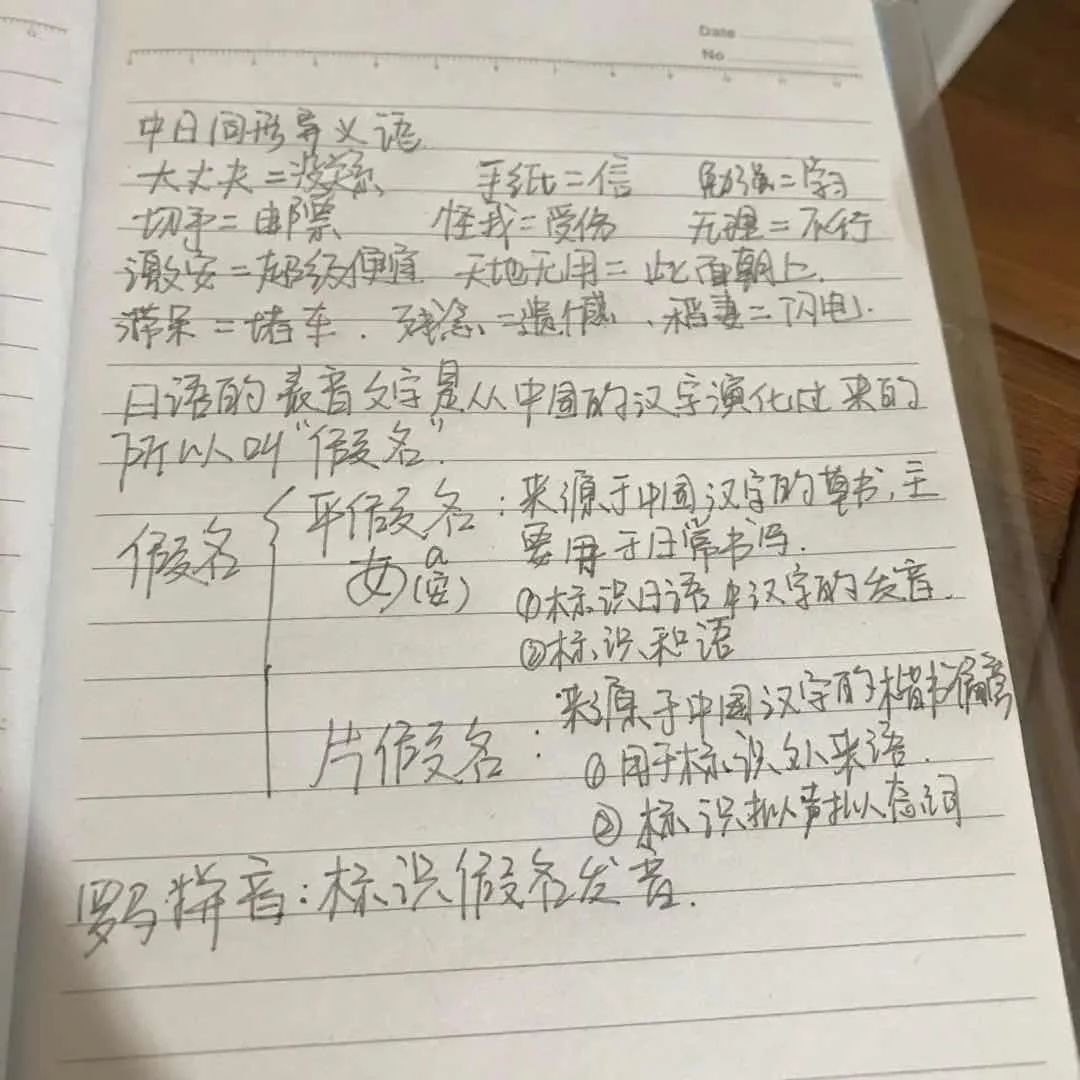 Date
No
中日同形异义语
大丈夫=没关系 手纸=信 勉强=学习
切手=邮票 怪我=受伤 无理=不行
激安=超级便宜 天地无用=此面朝上.
滞呆=堵车. 残念=遗憾、稻妻=闪电.
日语的表音文字是从中国的汉字演化过来的
所以叫"假名".
假名
平假名:来源于中国汉字的草书,主
要用于日常书写.
あ a (安)
①标识日语中汉字的发音.
②标识和语
片假名:来源于中国汉字的楷书偏旁
①用于标识外来语.
②标识拟声拟态词
罗马拼音:标识假名发音.